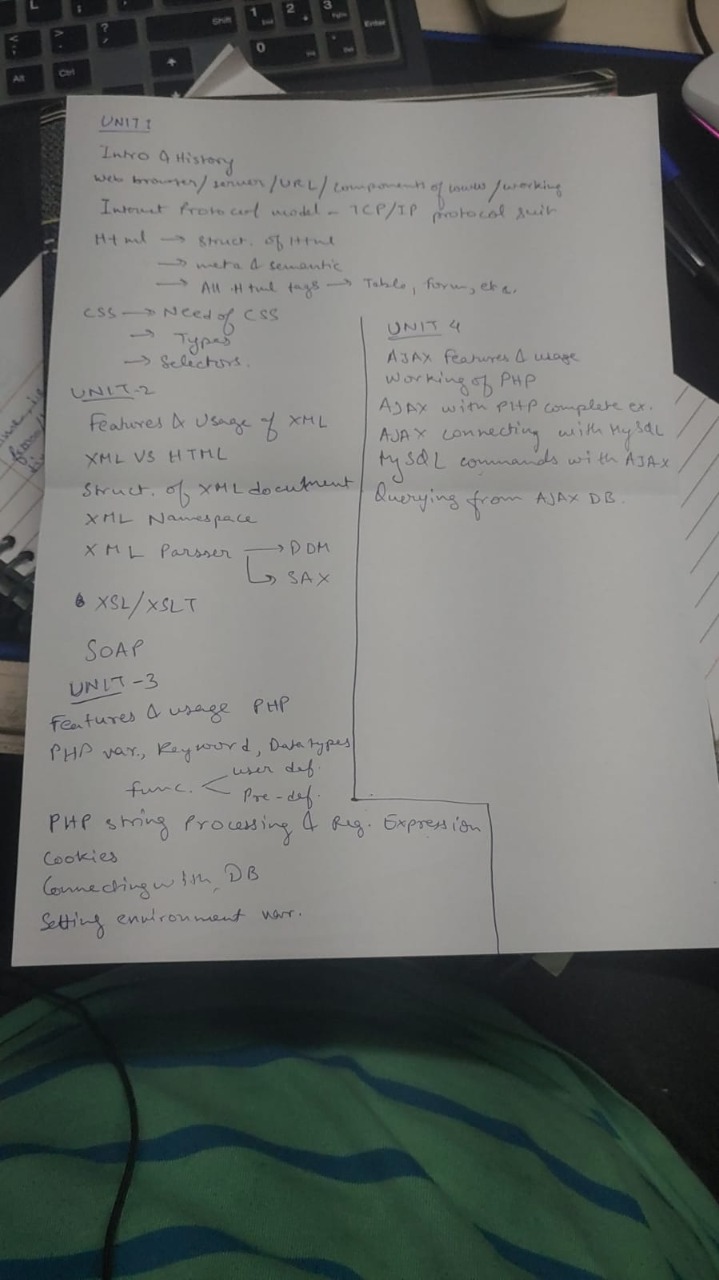 UNIT 1
Intro & History
Web browser/server/URL/components of www/working
Internet Protocol model - TCP/IP protocol suit
Html → Struct. of Html
→ meta & semantic
→ All Html tags → Table, form, etc.
CSS → Need of CSS
→ Types
→ Selectors.
UNIT-2
Features & Usage of XML
XML VS HTML
Struct. of XML document
XML Namespace
XML Parsser → DOM
→ SAX
XSL/XSLT
SOAP
UNIT-3
Features & usage PHP
PHP var., Keyword, Datatypes
func. < user def.
Pre-def.
PHP string Processing & Reg. Expression
Cookies
Connecting with DB
Setting environment var.
UNIT 4
AJAX features & usage
Working of PHP
AJAX with PHP complete ex.
AJAX connecting with MySQL
MySQL commands with AJAX
Querying from AJAX DB.
Shift
Alt
Ctrl
Enter
1
2
3
0